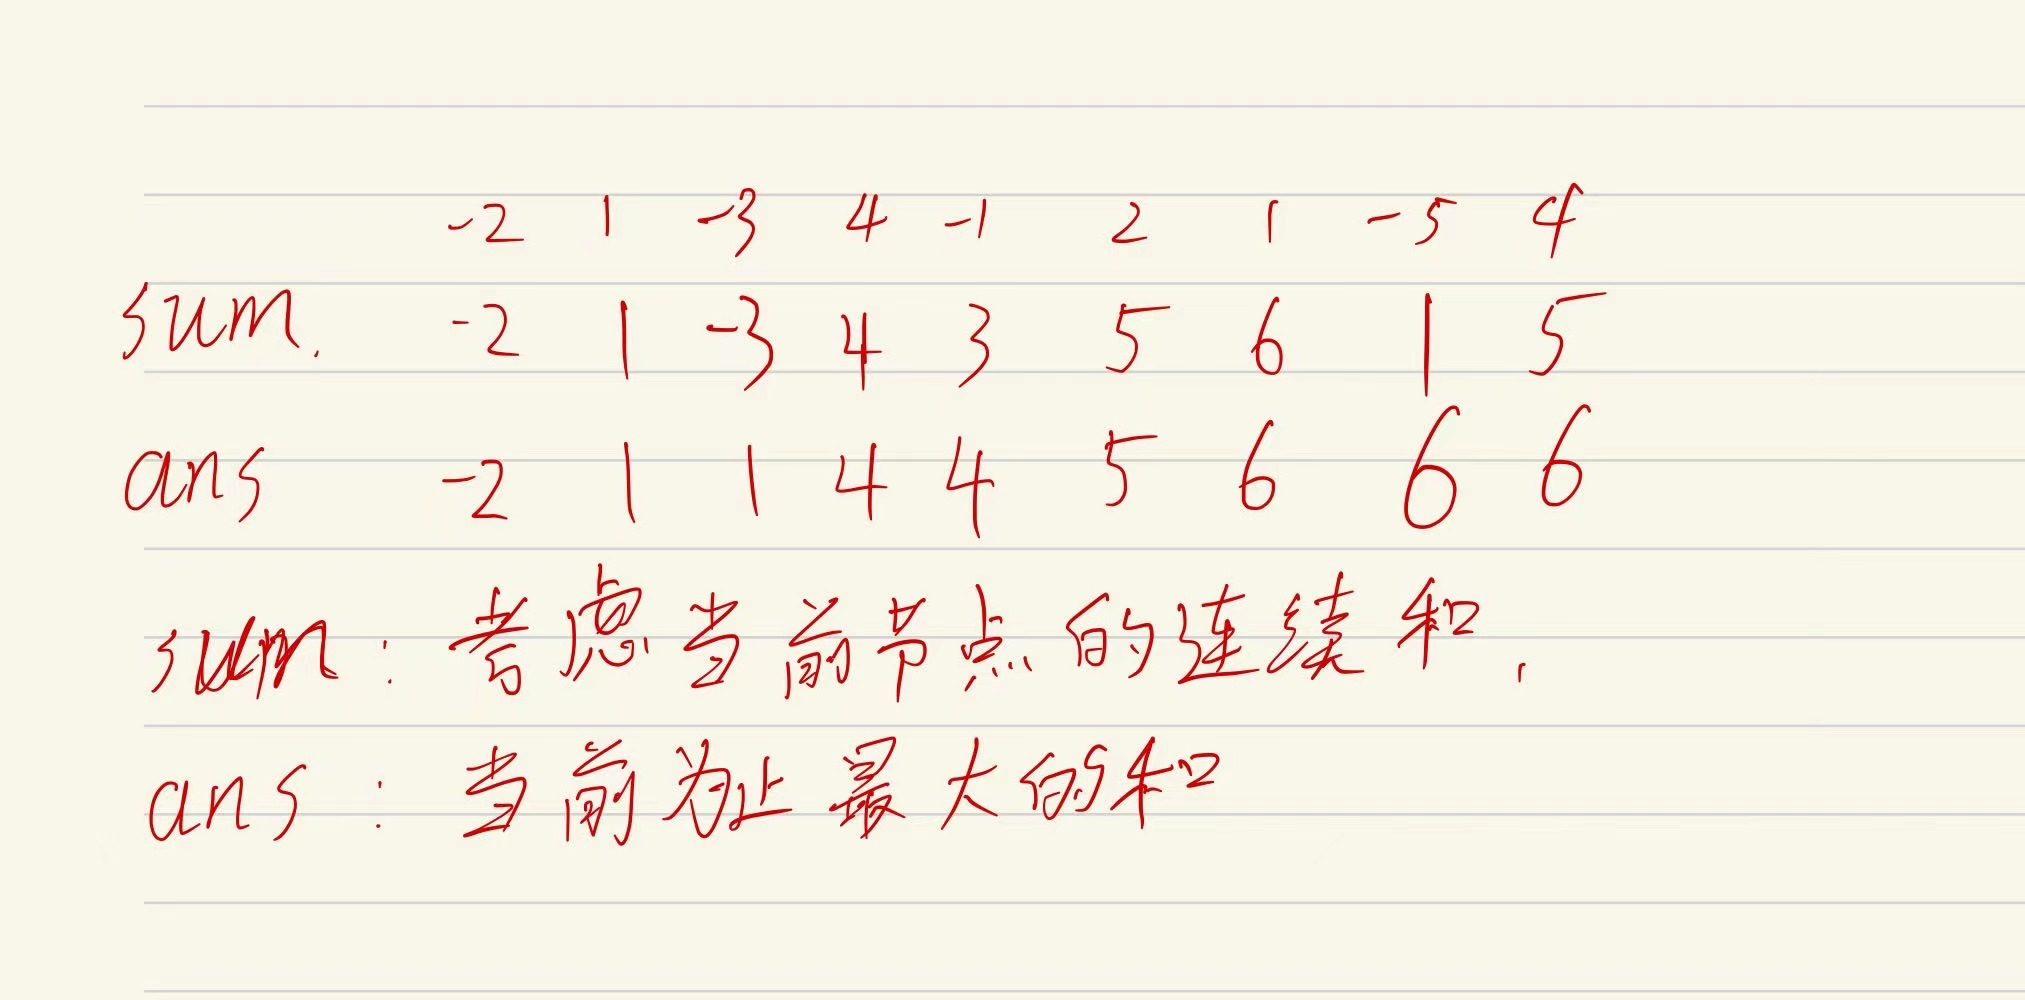 -2 1 -3 4 -1 2 1 -5 4
sum. -2 1 -3 4 3 5 6 1 5
ans -2 1 1 4 4 5 6 6 6
sum : 考虑当前节点的连续和.
ans : 当前为止最大的和